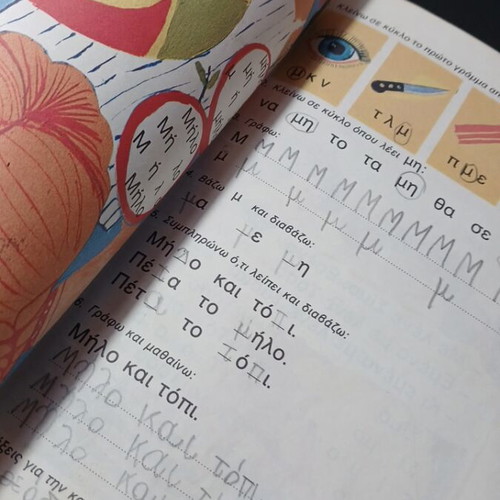 Μ μ
Μη μ
Μήλο
Μ μ
Μ ή
Μήλο
Κλείνω σε κύκλο το πρώτο γράμμα
μ κ ν
τ λ μ
π μ ε
Κλείνω σε κύκλο όπου λέει μη:
να μη το τα μη θα σε
Γράφω:
Μ Μ Μ Μ Μ Μ Μ Μ Μ Μ
μ μ μ μ μ μ
4. Βάζω μ και διαβάζω:
μα με μη
5. Συμπληρώνω ό,τι λείπει και διαβάζω:
Μήλο και τόπι.
Πέτα το μήλο.
Πέτα το τόπι.
6. Γράφω και μαθαίνω:
Μήλο και τόπι.
Μήλο και τόπι
Μήλο και τ
λο και